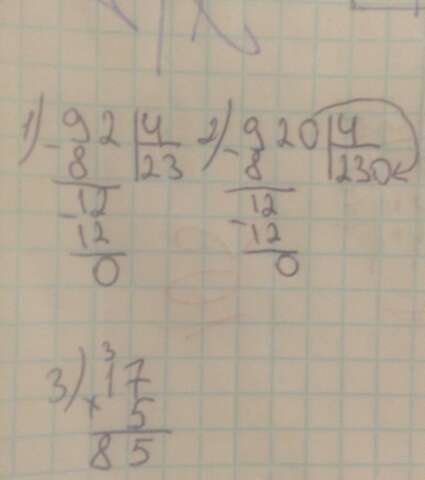 1) 92 | 4 2) 920 | 4
- 8 | 23 - 8 | 230
- 12 - 12
12 12
0 0
3
3) 17
× 5
85